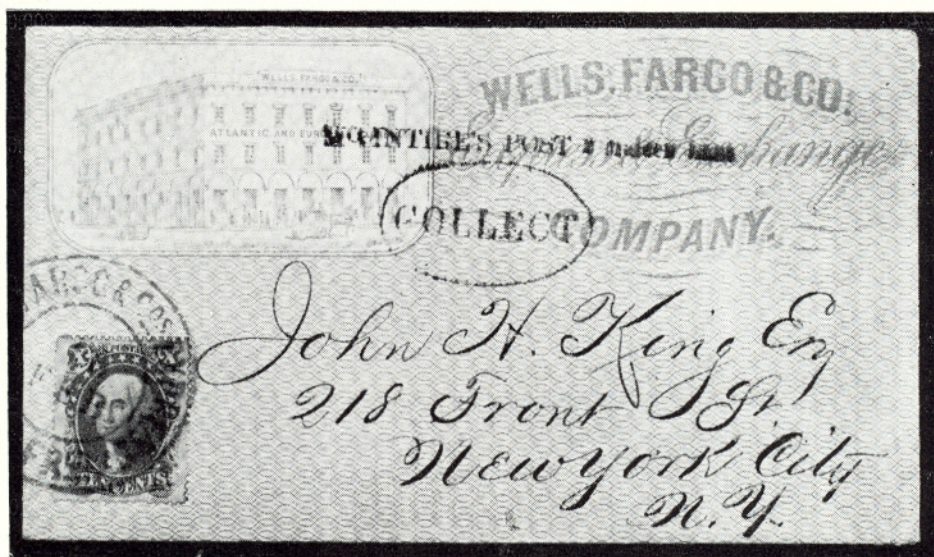 WELLS, FARGO & CO.
ATLANTIC AND EURO
WELLS, FARGO & CO.
Express & Exchange
COMPANY.
McINTIRE'S POST 2 Maiden Lane
COLLECT
ARGO & COS
TEN CENTS
John H. King Esq
218 Front St
New York City
N.Y.